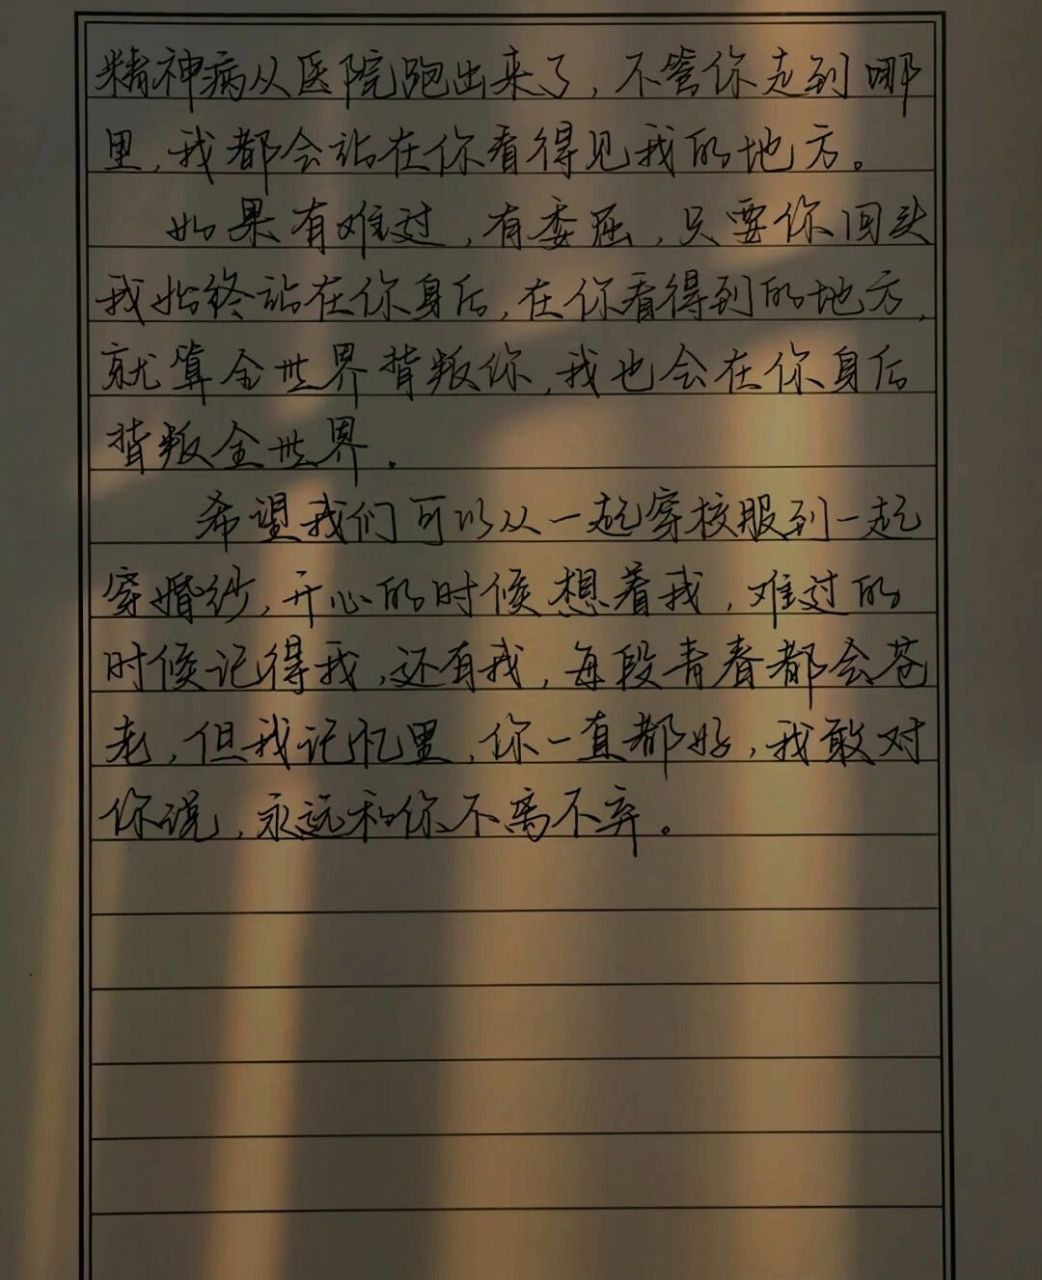 精神病从医院跑出来了，不管你走到哪
里，我都会站在你看得见我的地方。
如果有难过，有委屈，只要你回头
我始终站在你身后，在你看得到的地方，
就算全世界背叛你，我也会在你身后
背叛全世界．
希望我们可以从一起穿校服到一起
穿婚纱，开心的时候想着我，难过的
时候记得我，还有我，每段青春都会苍
老，但我记忆里，你一直都好，我敢对
你说，永远和你不离不弃。